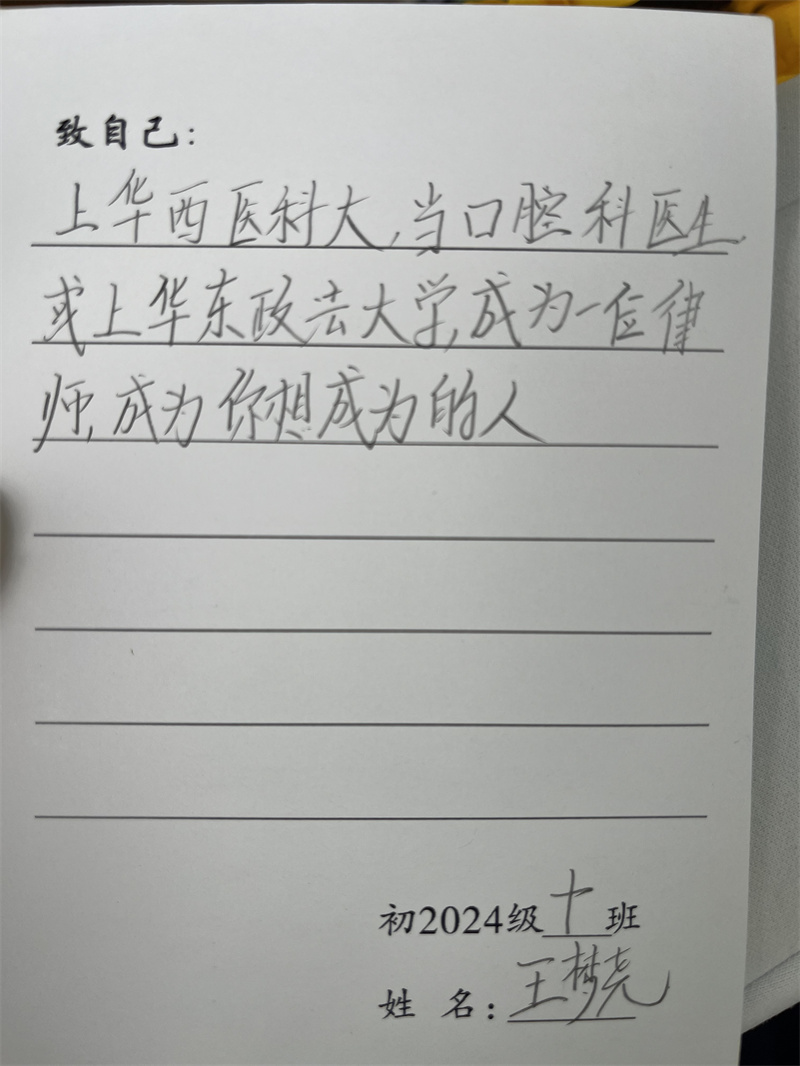 致自己：
上华西医科大，当口腔科医生
或上华东政法大学，成为一位律
师，成为你想成为的人
初2024级十班
姓 名：王梦尧